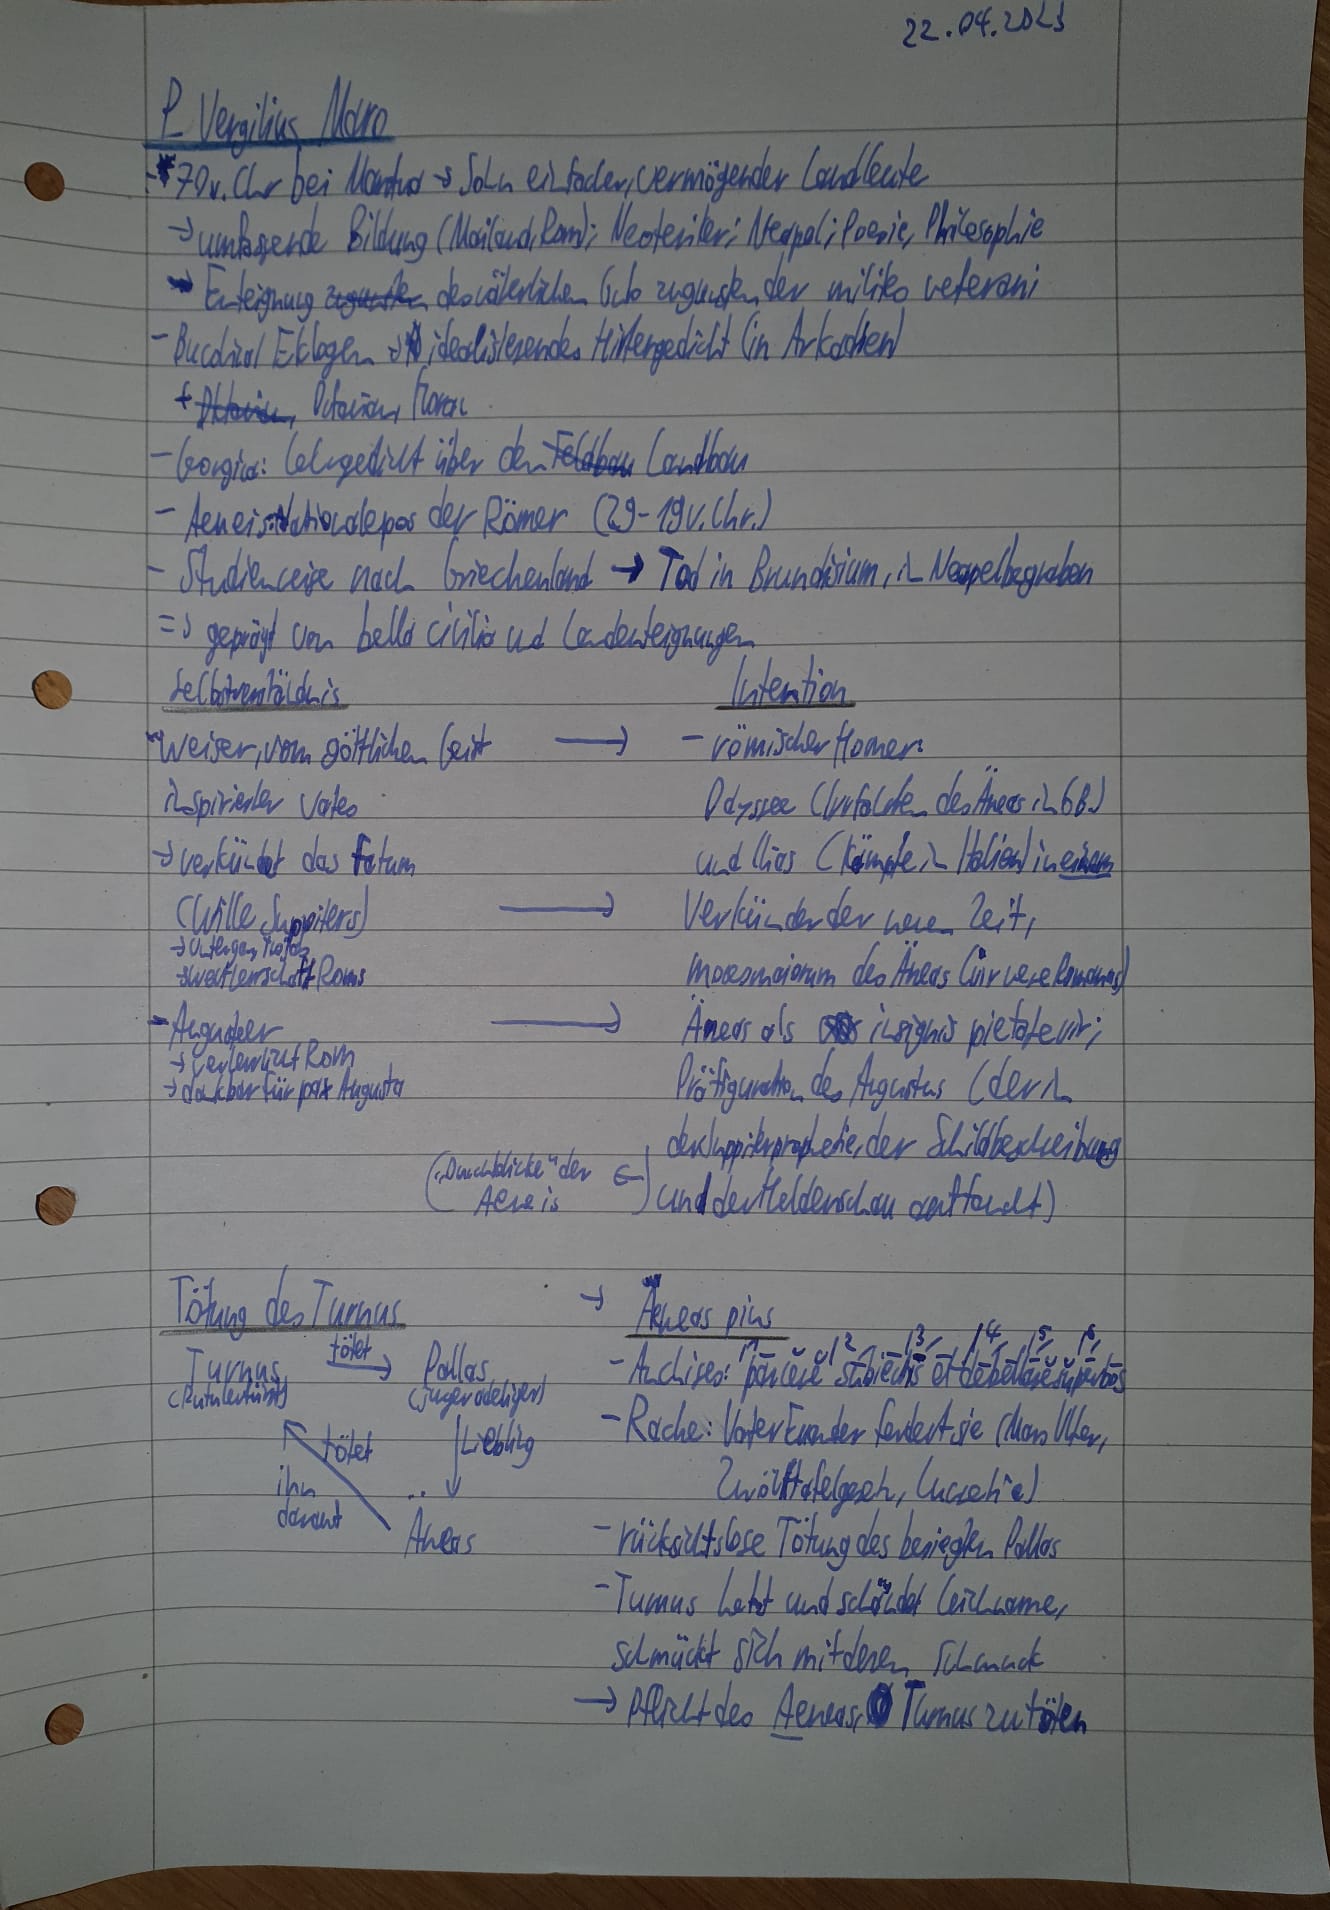 22.04.2023
P. Vergilius Maro
- *70 v. Chr bei Mantua → Sohn einfacher, vermögender Landleute
→ umfassende Bildung (Mailand, Rom); Neoteriker; Neapel; Poesie, Philosophie
→ Enteignung des väterlichen Guts zugunsten der milites veterani
- Bucolica/ Eklogen → idealisierendes Hirtengedicht (in Arkadien)
+ Octavian, Horaz
- Georgica: Lehrgedicht über den Landbau
- Aeneis: Nationalepos der Römer (29-19 v. Chr.)
- Studienreise nach Griechenland → Tod in Brundisium, in Neapel begraben
=> geprägt von bella civilia und Landenteignungen
Selbstverständnis Intention
- Weiser, vom göttlichen Geist → - römischer Homer:
inspirierter vates Odyssee (Irrfahrten des Äneas in 6B.)
→ verkündet das fatum und Ilias (Kämpfe in Italien) in einem
(Wille Juppiters) → Verkünder der neuen Zeit,
→ Untergang Trojas
→ Weltherrschaft Roms mores maiorum des Äneas (vir vere Romanus)
- Augusteer → Äneas als insignis pietate vir;
→ verherrlicht Rom
→ dankbar für pax Augusta Präfiguration des Augustus (der in
der Juppiterprophetie, der Schildbeschreibung
("Durchblicke" der Aeneis ←) und der Heldenschau auftaucht)
Tötung des Turnus → Äneas pius
Turnus tötet → Pallas - Anchises: parcere subiectis et debellare superbos
1 2 3 4 5 6
(Rutulerfürst) (junger Adeliger)
- Rache: Vater Euander fordert sie (Mars Ultor,
tötet Liebling
ihn Zwölftafelgesetz, Lucretia)
darauf
Äneas - rücksichtslose Tötung des besiegten Pallas
- Turnus hetzt und schändet Leichname,
schmückt sich mit deren Schmuck
→ Pflicht des Aeneas, Turnus zu töten